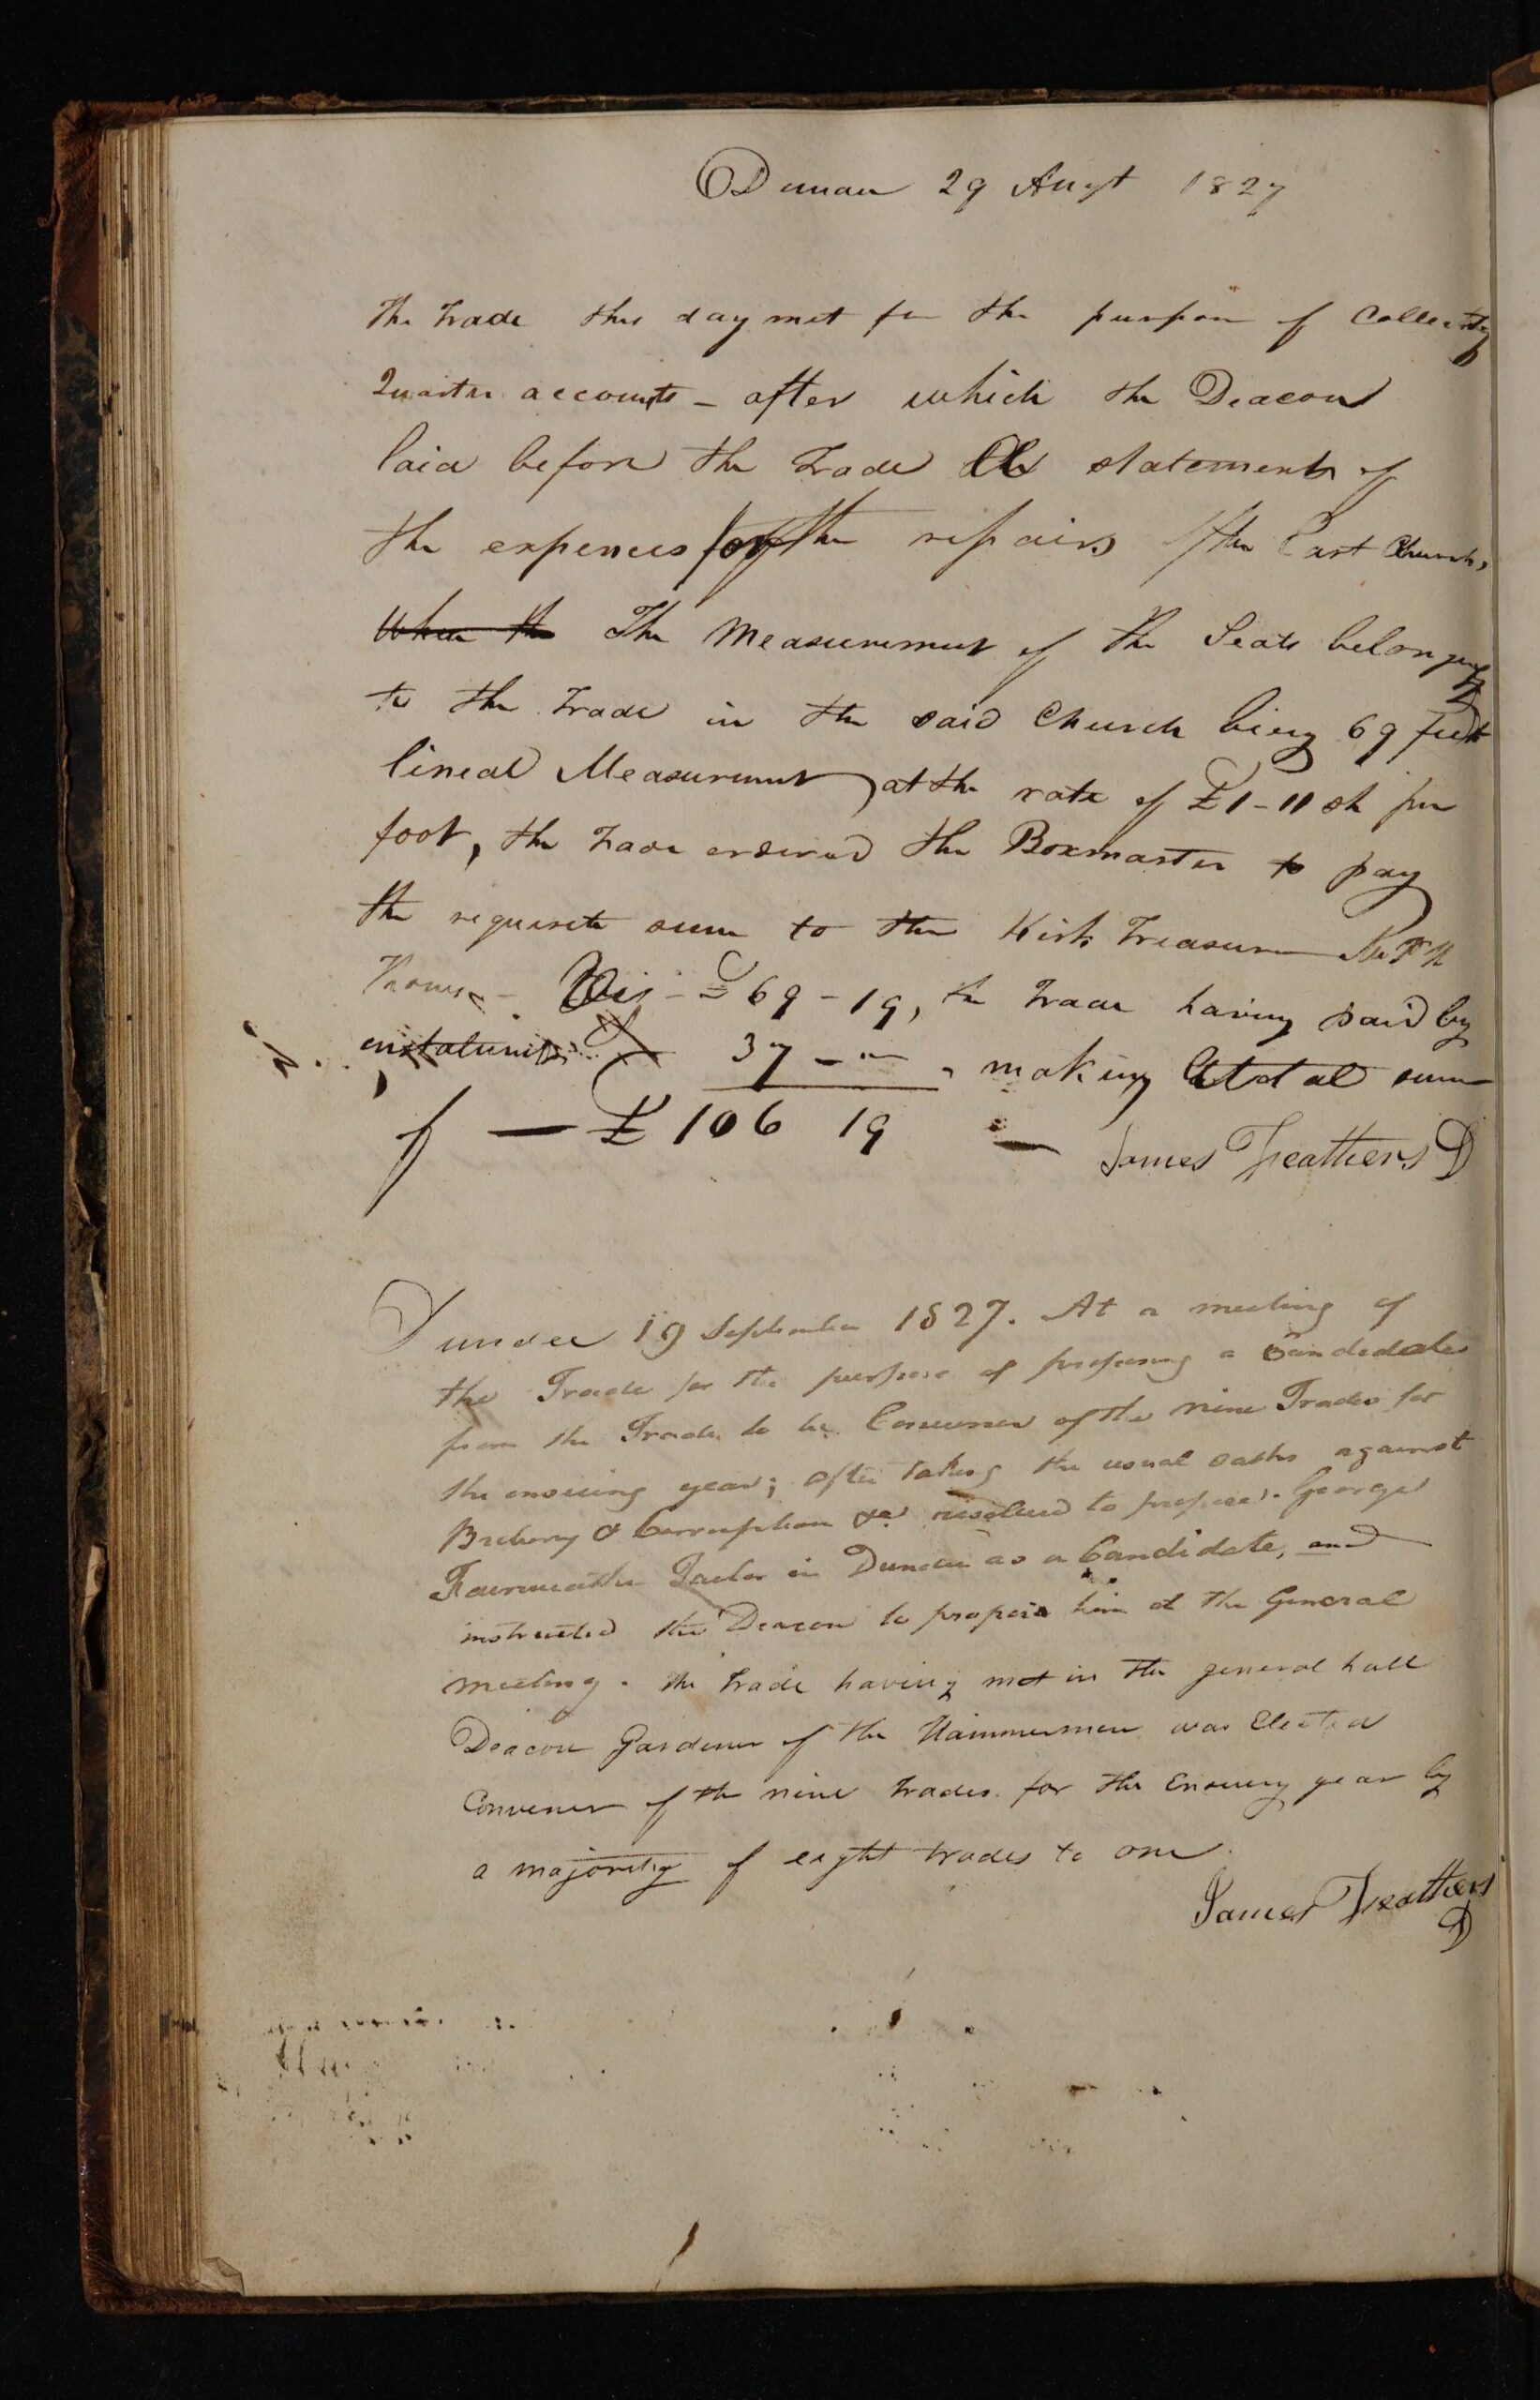 Dundee 29 Augt 1827
The Trade this day met for the purpose of Collecting
Quarter accounts - after which the Deacon
laid before the Trade the statement of
the expences for the repairs of the East Church,
When the The Measurement of the Seats belonging
to the Trade in the said Church being 69 feet
lineal Measurement, at the rate of £1-11 sh per
foot, the Trade ordered the Boxmaster to pay
the requisite sum to the Kirk Treasurer Mr
Thoms - Viz - £69-19, the Trade having paid by
instalments 37 - " making a total sum
of — £106 19 —
James Feathers D
Dundee 19 September 1827. At a meeting of
the Trade for the purpose of proposing a Candidate
from the Trade to be Convener of the nine Trades for
the ensuing year; after taking the usual oaths against
Bribery & Corruption &c resolved to propose George
Fairweather Tailor in Dundee as a Candidate, and
instructed the Deacon to propose him at the General
meeting. The Trade having met in the general hall
Deacon Gardener of the Hammermen was Elected
Convener of the nine trades for the Ensuing year by
a majority of eight trades to one.
James Feathers
D